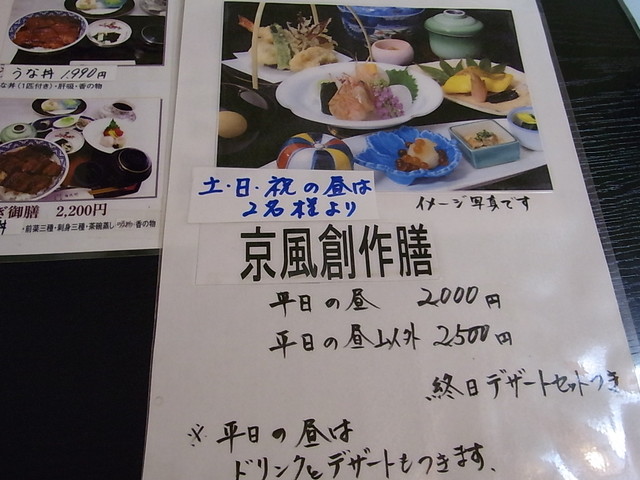 うな丼 1,990円
な丼(1匹付き)・肝吸・香の物
ぎ御膳 2,200円
・前菜三種・刺身三種・茶碗蒸し
土・日・祝の昼は
2名様より
イメージ写真です
京風創作膳
平日の昼 2,000円
平日の昼以外 2500円
終日デザートセットつき
※平日の昼は
ドリンクとデザートもつきます.